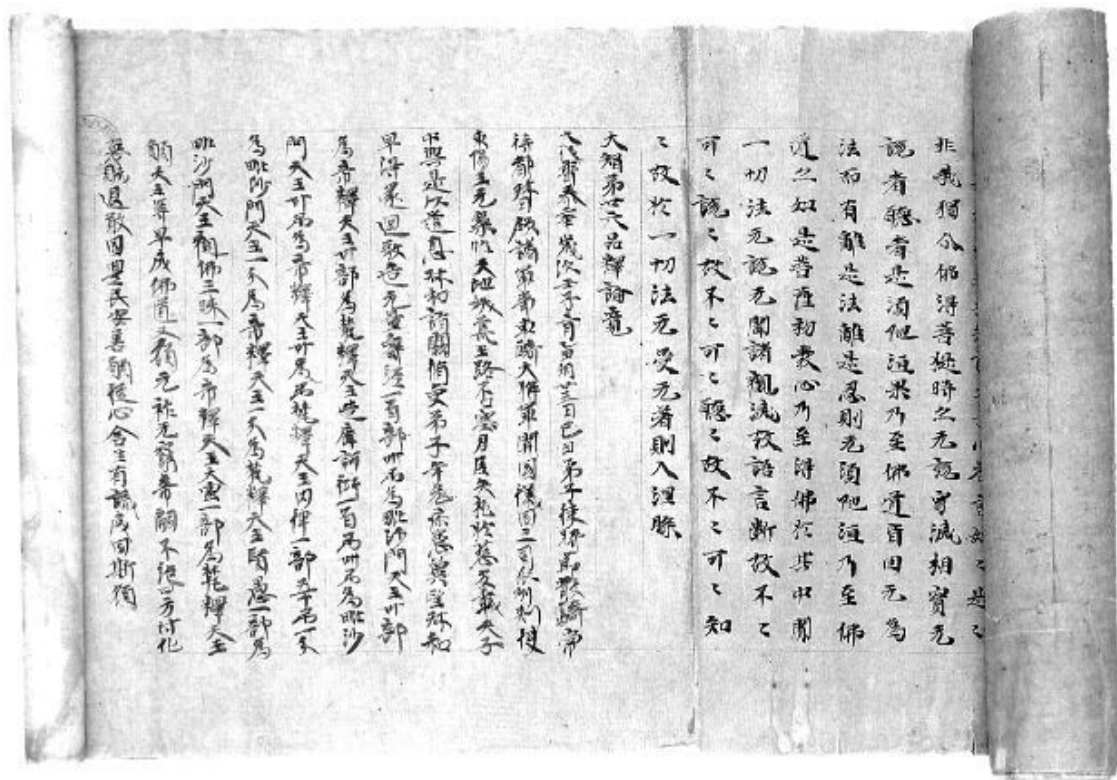 非我獨今佛得菩提時亦无說寂滅相實无
說者聽者是須陁洹果乃至佛道皆因无為
法而有離是法離是忍則无須陁洹乃至佛
道亦如是菩薩初發心乃至得佛於其中間
一切法无說无聞諸觀滅故語言斷故不〻
可〻說〻故不〻可〻聽〻故不〻可〻知
〻故於一切法无受无著則入涅槃
大智第廿六品釋論竟
大代普泰二年歲次壬子三月乙丑朔廿五日己丑弟子使持節散騎常
侍都督嶺西諸軍事車騎大將軍開府儀同三司瓜州刺史
東陽王元榮惟天地妖荒王路否塞君臣失禮於茲多載天子
中興是以遣息叔和詣闕修受弟子年老疹患冀望叔和
早得還迴敬造无量壽經一百部卌部為毗沙門天王卅部
為帝釋天王卅部為梵釋天王造摩訶衍一百卷卌卷為毗沙
門天王卅卷為帝釋天王卅卷為梵釋天王內律一部五十卷一分
為毗沙門天王一分為帝釋天王一分為梵釋天王賢愚一部為
毗沙門天王觀佛三昧一部為帝釋天王大雲一部為梵釋天王
願天王等早成佛道又願元祚无窮帝嗣不絕四方付化
惡賊退散國豐民安善願從心含生有識咸同斯願